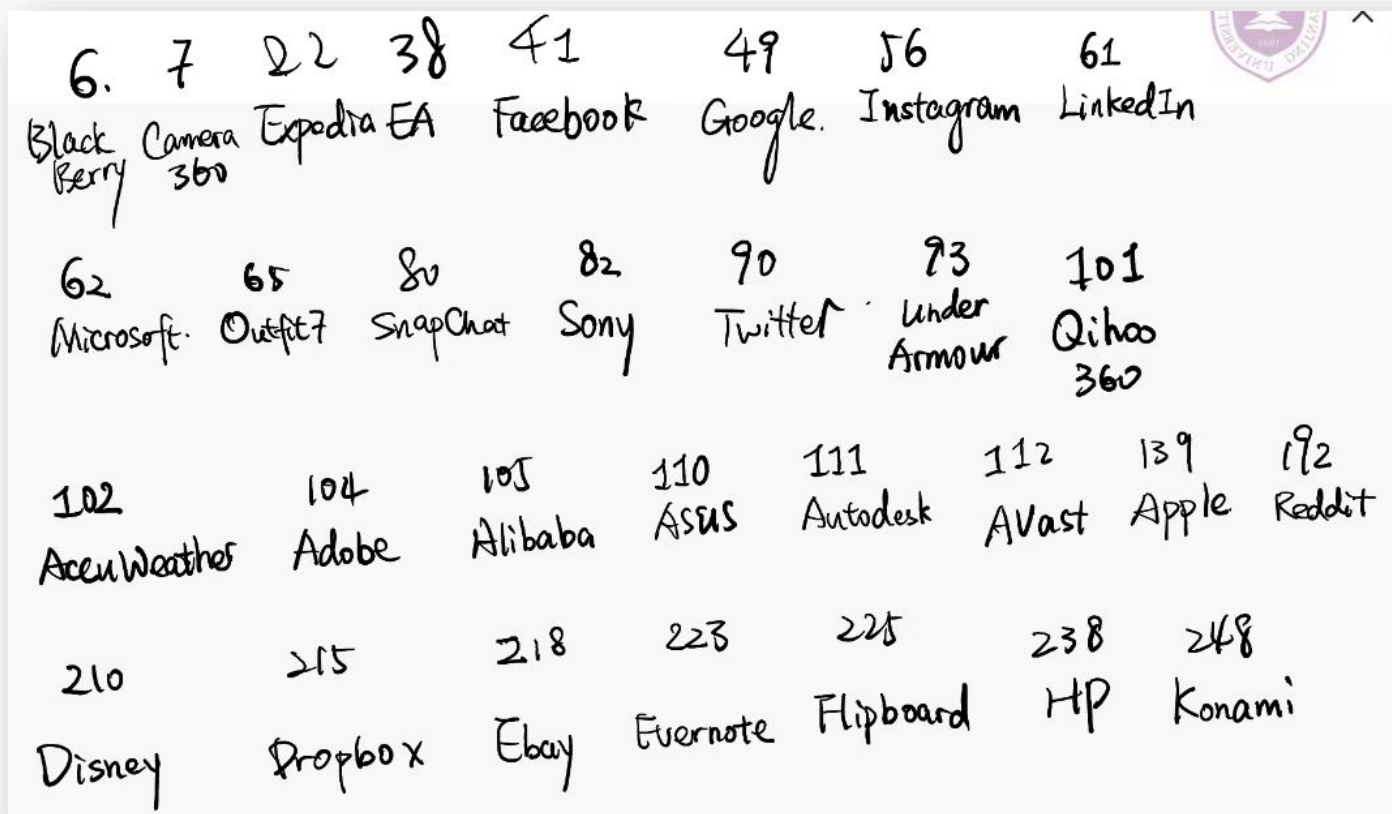 6. 7 22 38 41 49 56 61
Black Berry Camera 360 Expedia EA Facebook Google. Instagram LinkedIn
62 65 80 82 90 93 101
Microsoft. Outfit7 SnapChat Sony Twitter Under Armour Qihoo 360
102 104 105 110 111 112 139 192
AccuWeather Adobe Alibaba Asus Autodesk AVast Apple Reddit
210 215 218 223 225 238 248
Disney Dropbox Ebay Evernote Flipboard HP Konami